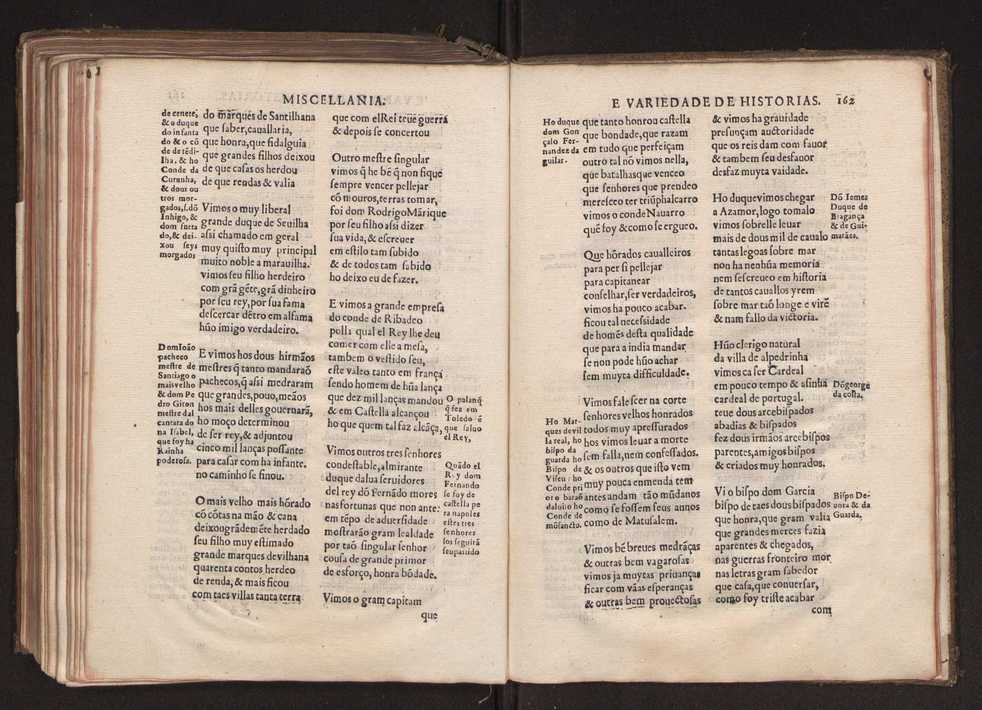 MISCELLANIA.
de cenete,
& o duque
do infanta
do & o cõ
de de tēdi-
lha. & ho
Conde da
Curunha,
& dous ou
tros mor-
gados, s. dõ
Inhigo, &
dom furta
do, & dei-
xou seys
morgados
do marques de Santilhana
que saber, cauallaria,
que honra, que fidalguia
que grandes filhos deixou
de que casas os herdou
de que rendas & valia

Vimos o muy liberal
grande duque de Seuilha
assi chamado em geral
muy quisto muy principal
muito noble a marauilha.
vimos seu filho herdeiro
com grã gēte, grã dinheiro
por seu rey, por sua fama
descercar dētro em alfama
hũo imigo verdadeiro.

Dom Ioão
pacheco
mestre de
Santiago o
mais velho
& dom Pe
dro Giron
mestre dal
cantara do
na Isabel,
que foy ha
Rainha
poderosa.
E vimos hos dous hirmãos
mestres q̃ tanto mandaraõ
pachecos, q̃ assi medraram
que grandes, pouo, meãos
hos mais delles gouernarã,
ho moço determinou
de ser rey, & adjuntou
cinco mil lanças possante
para casar com ha infante.
no caminho se finou.

O mais velho mais hõrado
cõ cõtas na mão & cana
deixou grãdemēte herdado
seu filho muy estimado
grande marques de vilhana
quarenta contos herdeo
de renda, & mais ficou
com taes villas tanta terra
que com el Rei teue guerra
& depois se concertou

Outro mestre singular
vimos q̃ he bē q̃ non fique
sempre vencer pellejar
cõ mouros, terras tomar,
foi dom Rodrigo Mãrique
por seu filho assi dizer
sua vida, & escreuer
em estilo tam subido
& de todos tam sabido
ho deixo eu de fazer.

E vimos a grande empresa
do conde de Ribadeo
polla qual el Rey lhe deu
comer com elle a mesa,
tambem o vestido seu,
este valeo tanto em frança
sendo homem de hũa lança
que dez mil lanças mandou
& em Castella alcançou
ho que quem tal faz alcãça,
O palanq̃
q̃ sea em
Toledo ē
que saluo
el Rey,

Vimos outros tres senhores
condestable, almirante
duque dalua seruidores
del rey dõ Fernãdo mores
nas fortunas que non ante:
em tēpo de aduersidade
mostrarão gram lealdade
por taõ singular senhor
cousa de grande primor
de esforço, honra bõdade.
Quãdo el
Rey dom
Fernando
se foy de
castella pe
ra napoles
estes tres
senhores
los seguirã

Vimos o gram capitam
que
E VARIEDADE DE HISTORIAS. 162
Ho duque
dom Gon
çalo Fer-
nandez da
guilar.
que tanto honrou castella
que bondade, que razam
em tudo que perfeiçam
outro tal nõ vimos nella,
que batalhas que venceo
que senhores que prendeo
mereceo ter triũphal carro
vimos o conde Nauarro
quē foy & como se ergueo.

Que hõrados caualleiros
para per si pellejar
para capitanear
conselhar, ser verdadeiros,
vimos ha pouco acabar.
ficou tal necessidade
de homēs desta qualidade
que para a india mandar
se non pode hũo achar
sem muyta difficuldade.

Ho Mar-
ques de vil
la real, ho
bispo da
guarda ho
Bispo de
Viseu: ho
Conde pri
or o baraõ
daluito ho
Conde de
mõsancto.
Vimos falescer na corte
senhores velhos honrados
todos muy apressurados
hos vimos leuar a morte
sem falla, nem confessados.
& os outros que isto vem
muy pouca enmenda tem
antes andam tão mũdanos
como se fossem seus annos
como de Matusalem.

Vimos bē breues medrãças
& outras bem vagarosas
vimos ja muytas priuanças
ficar com vãas esperanças
& outras bem prouectosas
& vimos ha grauidade
presunçam auctoridade
que os reis dam com fauor
& tambem seu desfauor
desfaz muyta vaidade.

Ho duque vimos chegar
a Azamor, logo tomalo
vimos sobrelle leuar
mais de dous mil de caualo
tantas legoas sobre mar
non ha nenhũa memoria
nem se screueo em historia
de tantos cauallos yrem
sobre mar taõ longe e virē
& nam fallo da victoria.
Dõ Iemes
Duque de
Bragança
& de Gui-
marães.

Hũo clerigo natural
da villa de alpedrinha
vimos ca ser Cardeal
em pouco tempo & asinha
cardeal de portugal.
teue dous arcebispados
abadias & bispados
fez dous irmãos arcebispos
parentes, amigos bispos
& criados muy honrados.
Dõ george
da costa.

Vi o bispo dom Garcia
bispo de taes dous bispados
que honra, que gram valia
que grandes merces fazia
a parentes & chegados,
nas guerras fronteiro mor
nas letras gram sabedor
que casa, que conuersar,
como foy triste acabar
com
Bispo De-
uora & da
Guarda.